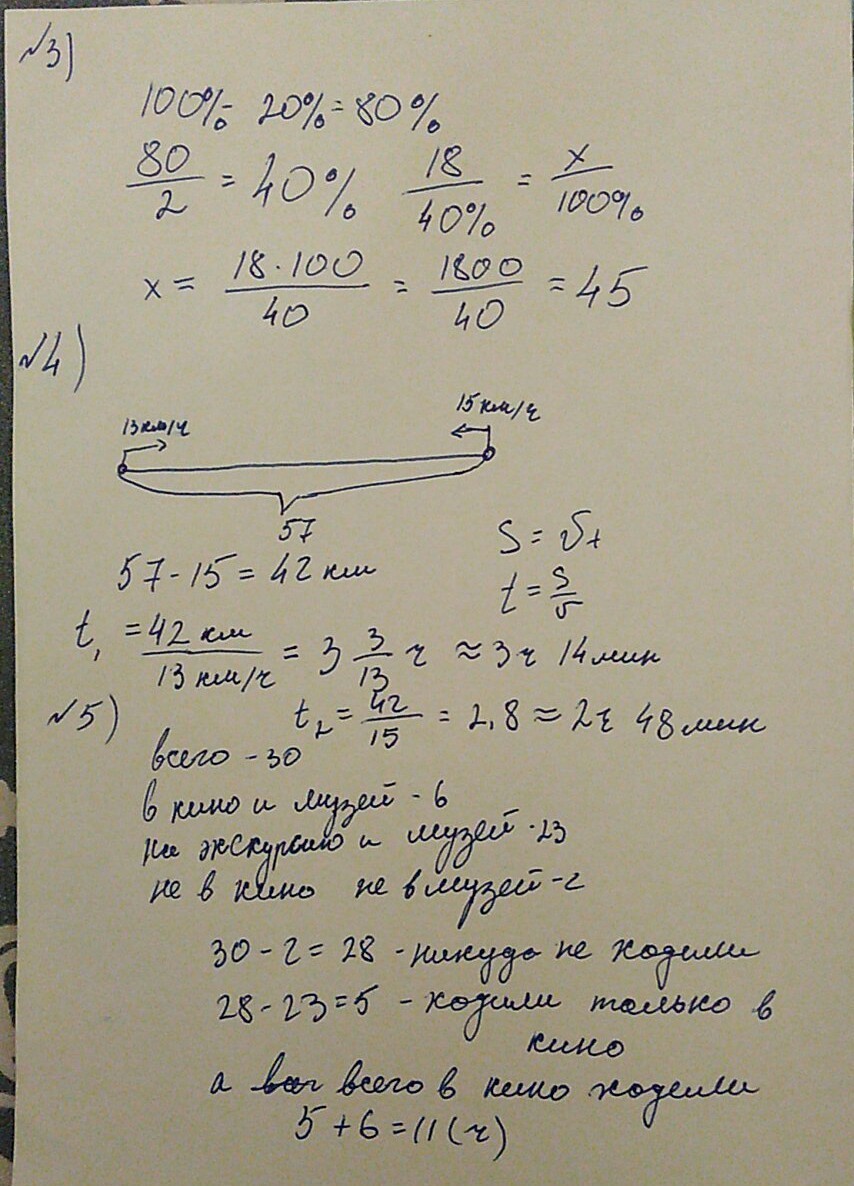 №3)
100% - 20% = 80%
80/2 = 40% 18/40% = x/100%
x = 18·100/40 = 1800/40 = 45
№4)
13км/ч 15км/ч
57
S = vt
57-15 = 42 км
t = S/v
t₁ = 42 км/13 км/ч = 3 3/13 ч ≈ 3ч 14мин
№5) t₂ = 42/15 = 2,8 ≈ 2ч 48мин
всего - 30
в кино и музей - 6
на экскурсию и музей - 23
не в кино не в музей - 2
30 - 2 = 28 - никуда не ходили
28 - 23 = 5 - ходили только в
кино
а всего в кино ходили
5 + 6 = 11 (ч)